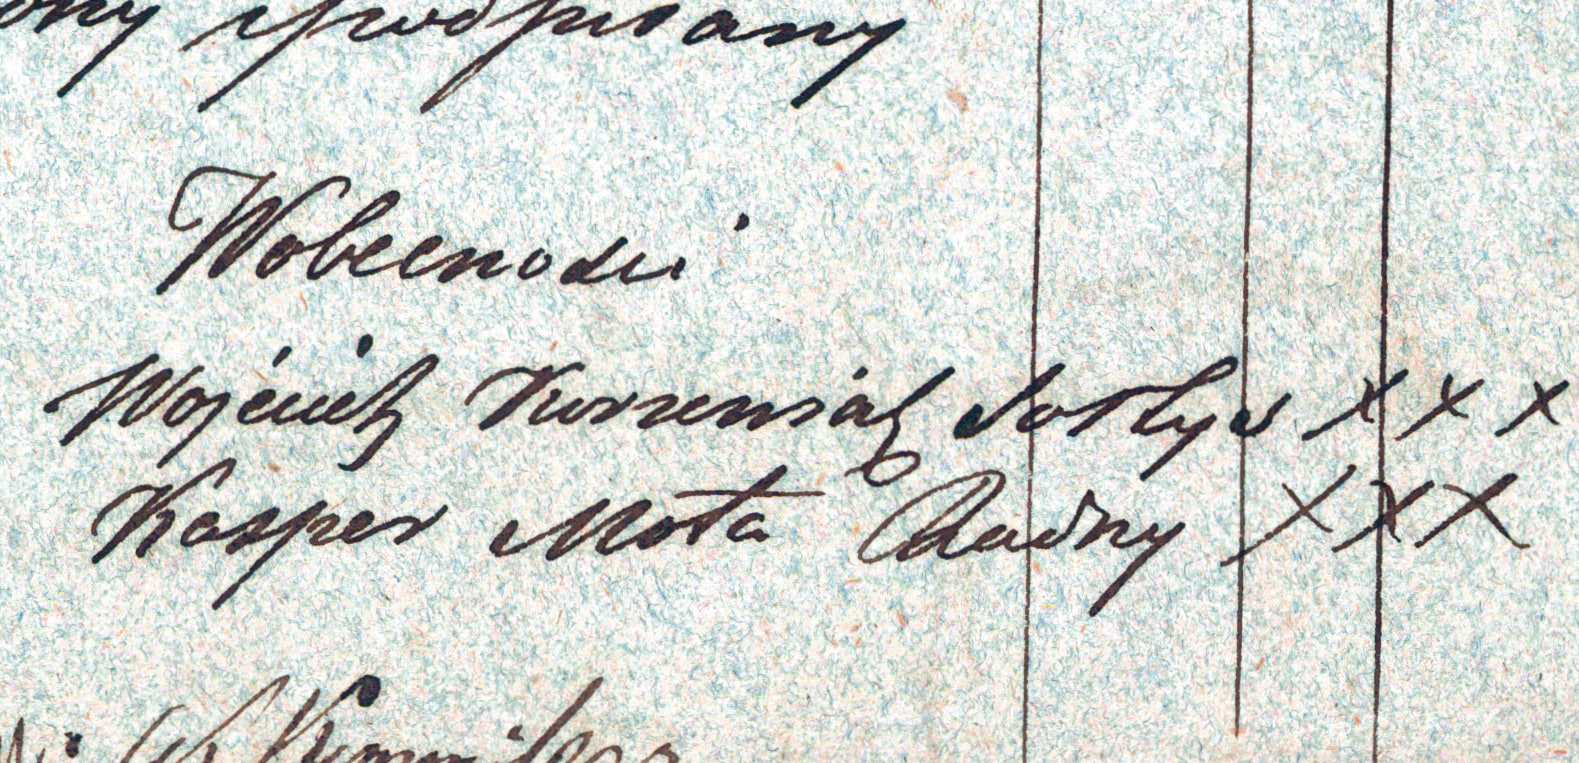 i podpisany
W obecności
Wojciech Kurzeniak Sołtys x x x
Kasper Mota Radny x x x